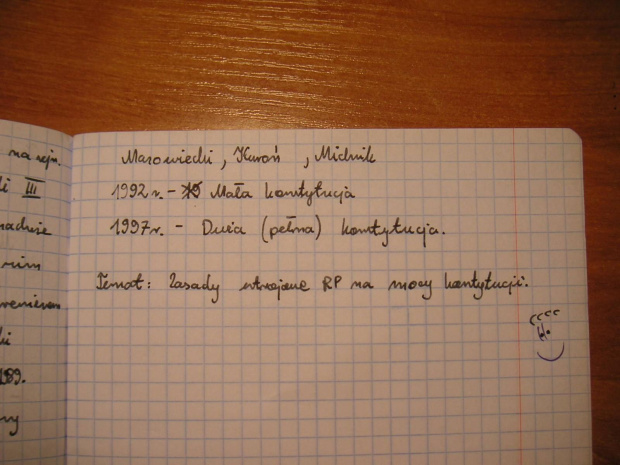 na sejm.
III
Mazowiecki, Kuroń, Michnik
1992 r. - Mała konstytucja
1997 r. - Duża (pełna) konstytucja.
Temat: Zasady ustrojowe RP na mocy konstytucji.
189.